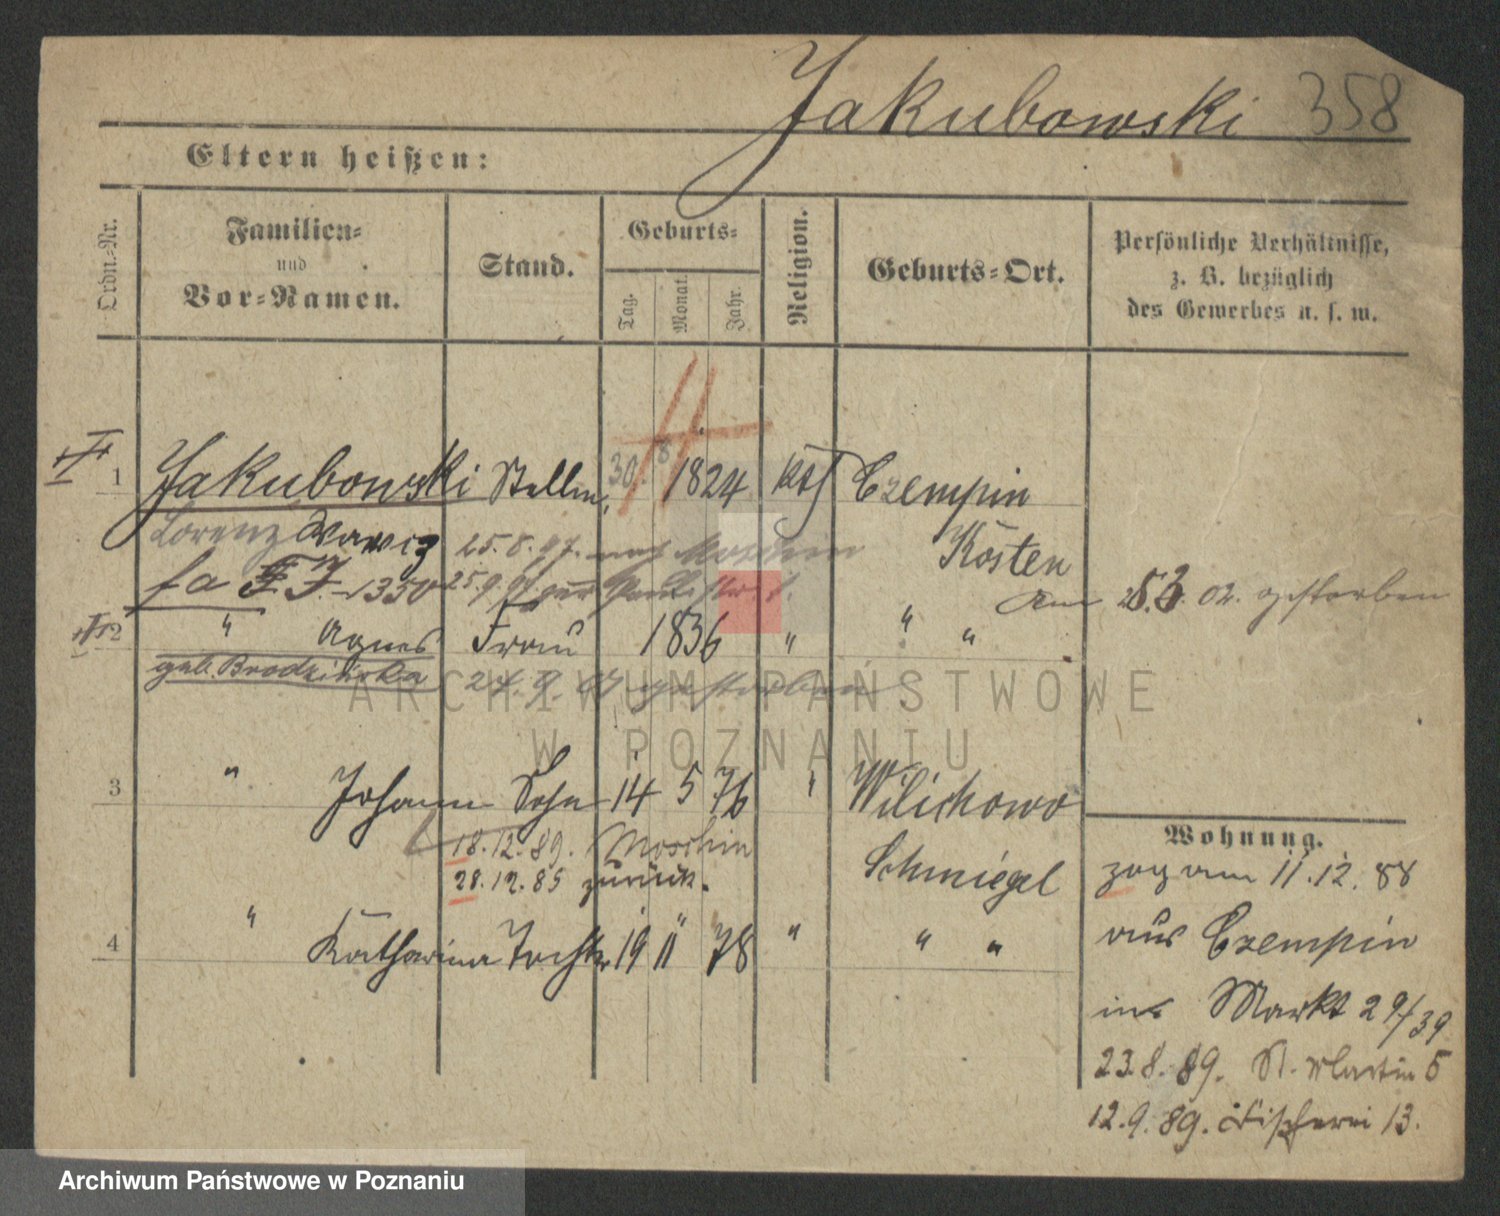 Jakubowski 358
Eltern heißen:
Ordn.-Nr.
Familien-
und
Vor-Namen.
Stand.
Geburts-
Tag.
Monat.
Jahr.
Religion.
Geburts-Ort.
Persönliche Verhältnisse,
z. B. bezüglich
des Gewerbes u. s. w.
1 Jakubowski 30. 8 1824 kth Czempin
Lorenz Wawrz 25.8.97. nach Moschin Kosten
1350
Am 02. gestorben
2 " Agnes Frau 1836 " " "
geb. Brodzinska 27.9.07 gestorben
ARCHIWUM PAŃSTWOWE
W POZNANIU
3 " Johann Sohn 14 5 76 " Wilichowo
18.12.89. Moschin Schmiegel
28.12.85 zurück.
4 " Katharina Tochter 19 11 78 " " "
Wohnung.
zog am 11.12.88
aus Czempin
Markt 29/39
23.8.89. St. Martin 5
12.9.89. Fischerei 13.
Archiwum Państwowe w Poznaniu